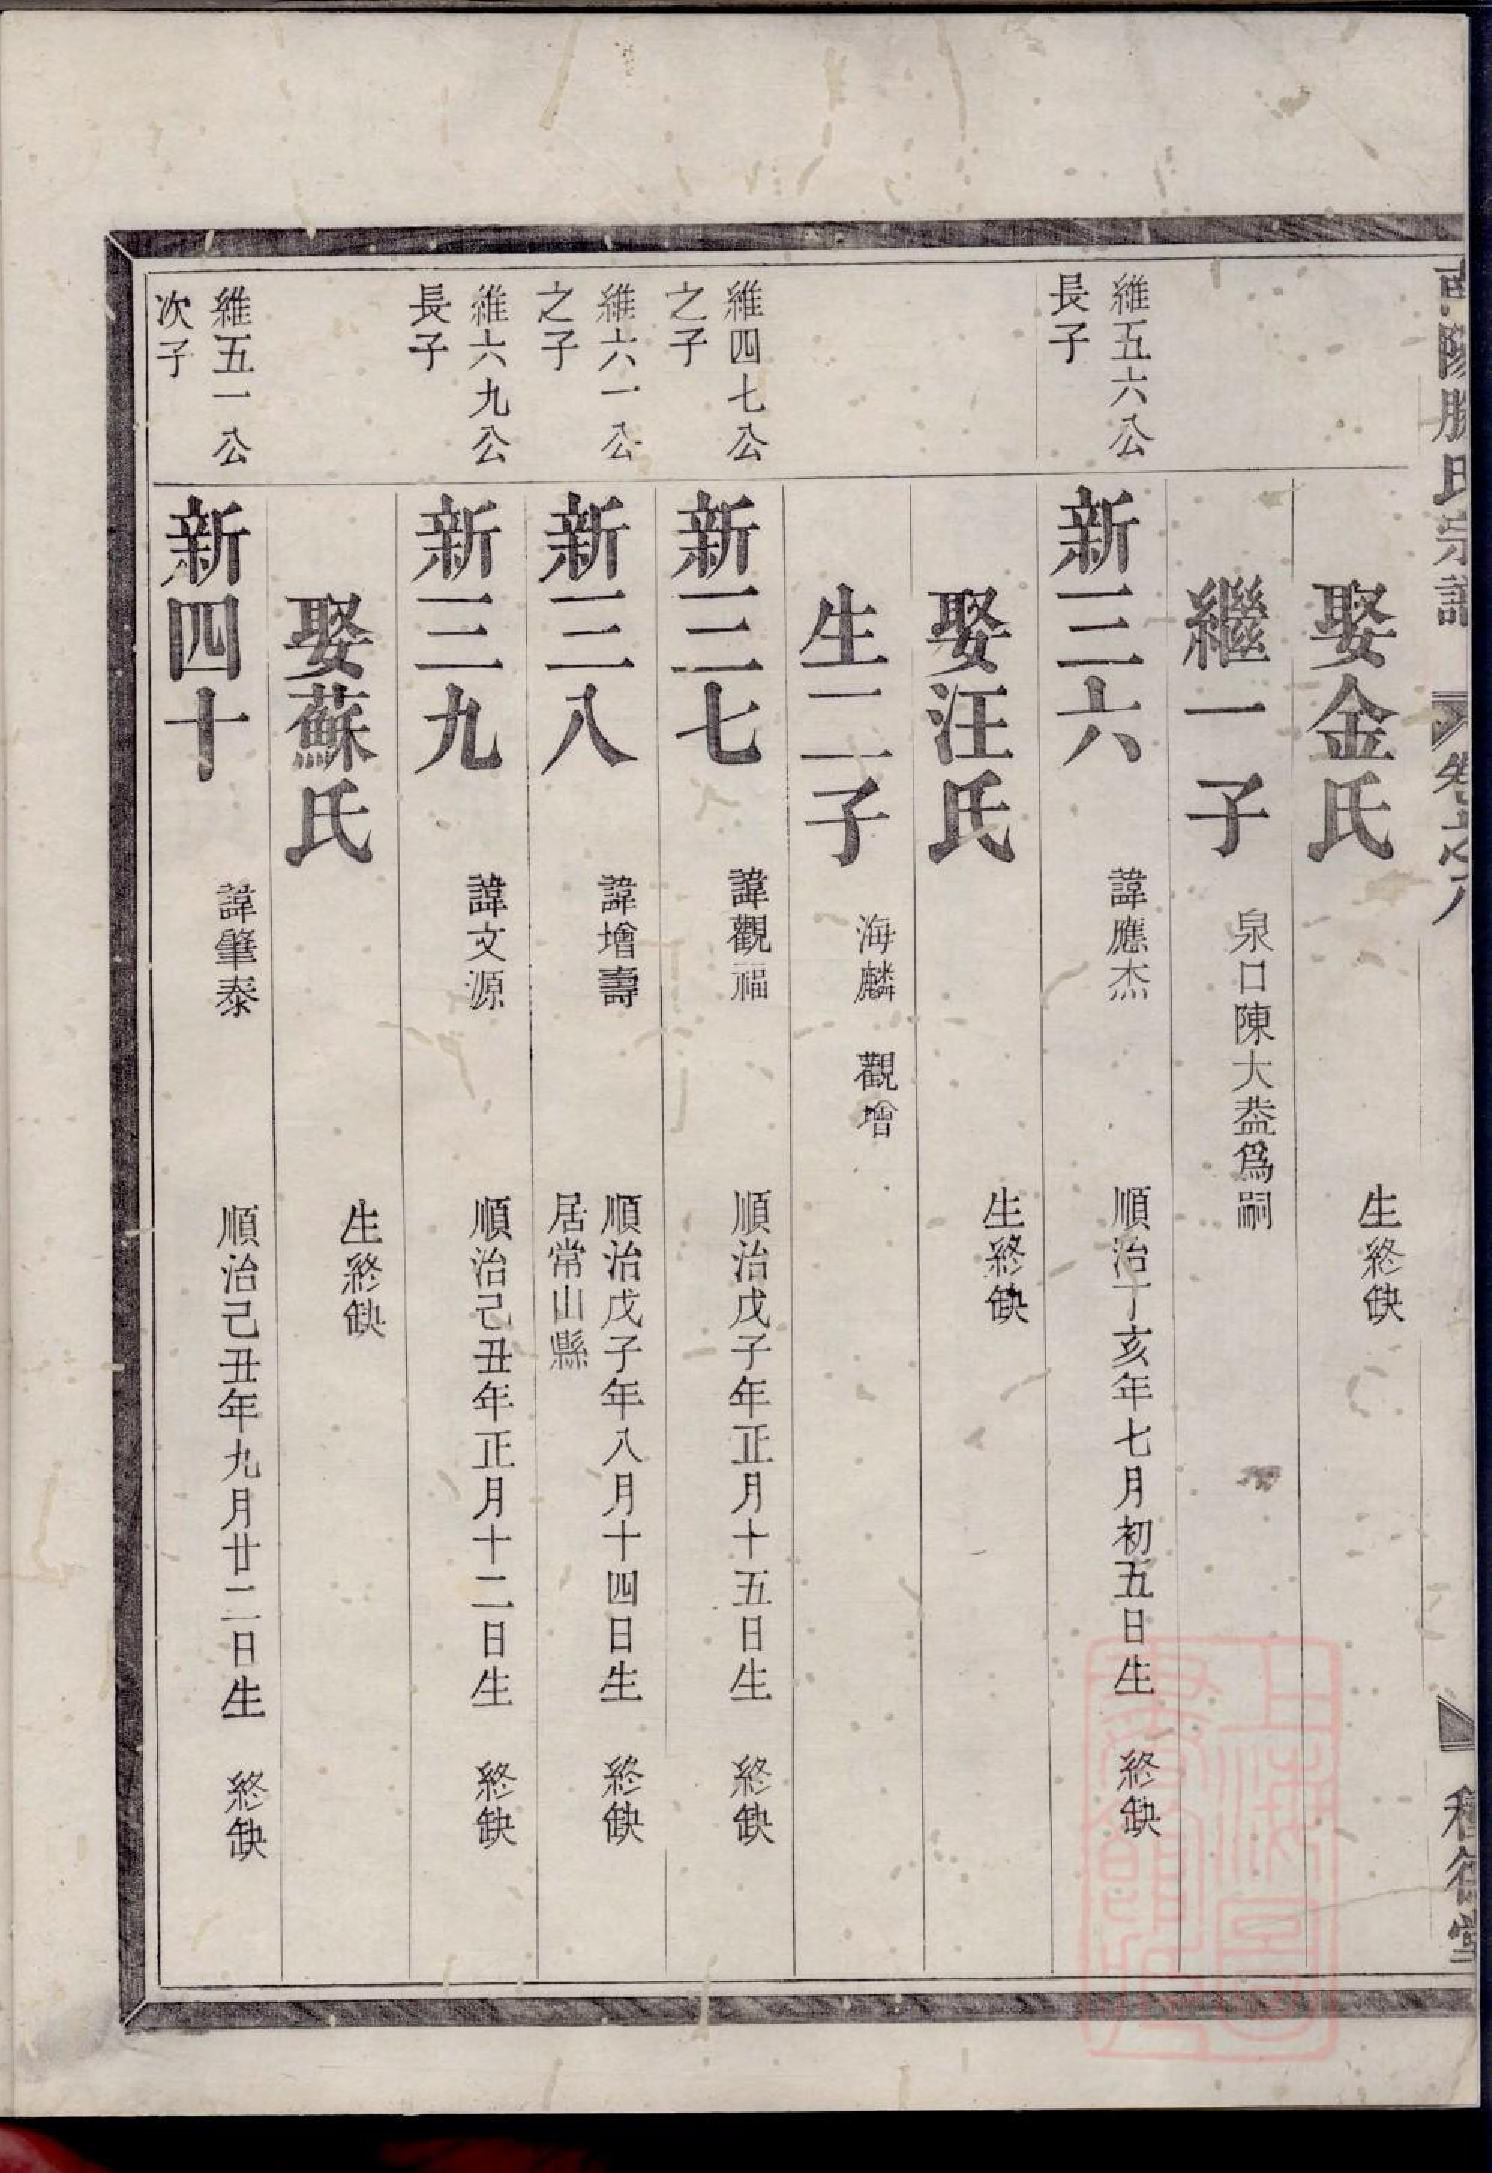 南陽滕氏宗譜 卷之八 種德堂
娶金氏 生終缺
繼一子 泉口陳大益爲嗣
維五六公長子
新三六 諱應杰 順治丁亥年七月初五日生 終缺
娶汪氏 生終缺
生二子 海麟 觀增
維四七公之子
新三七 諱觀福 順治戊子年正月十五日生 終缺
維六一公之子
新三八 諱增壽 順治戊子年八月十四日生 終缺
居常山縣
維六九公長子
新三九 諱文源 順治己丑年正月十二日生 終缺
娶蘇氏 生終缺
維五一公次子
新四十 諱肇泰 順治己丑年九月廿二日生 終缺
上海圖書館藏